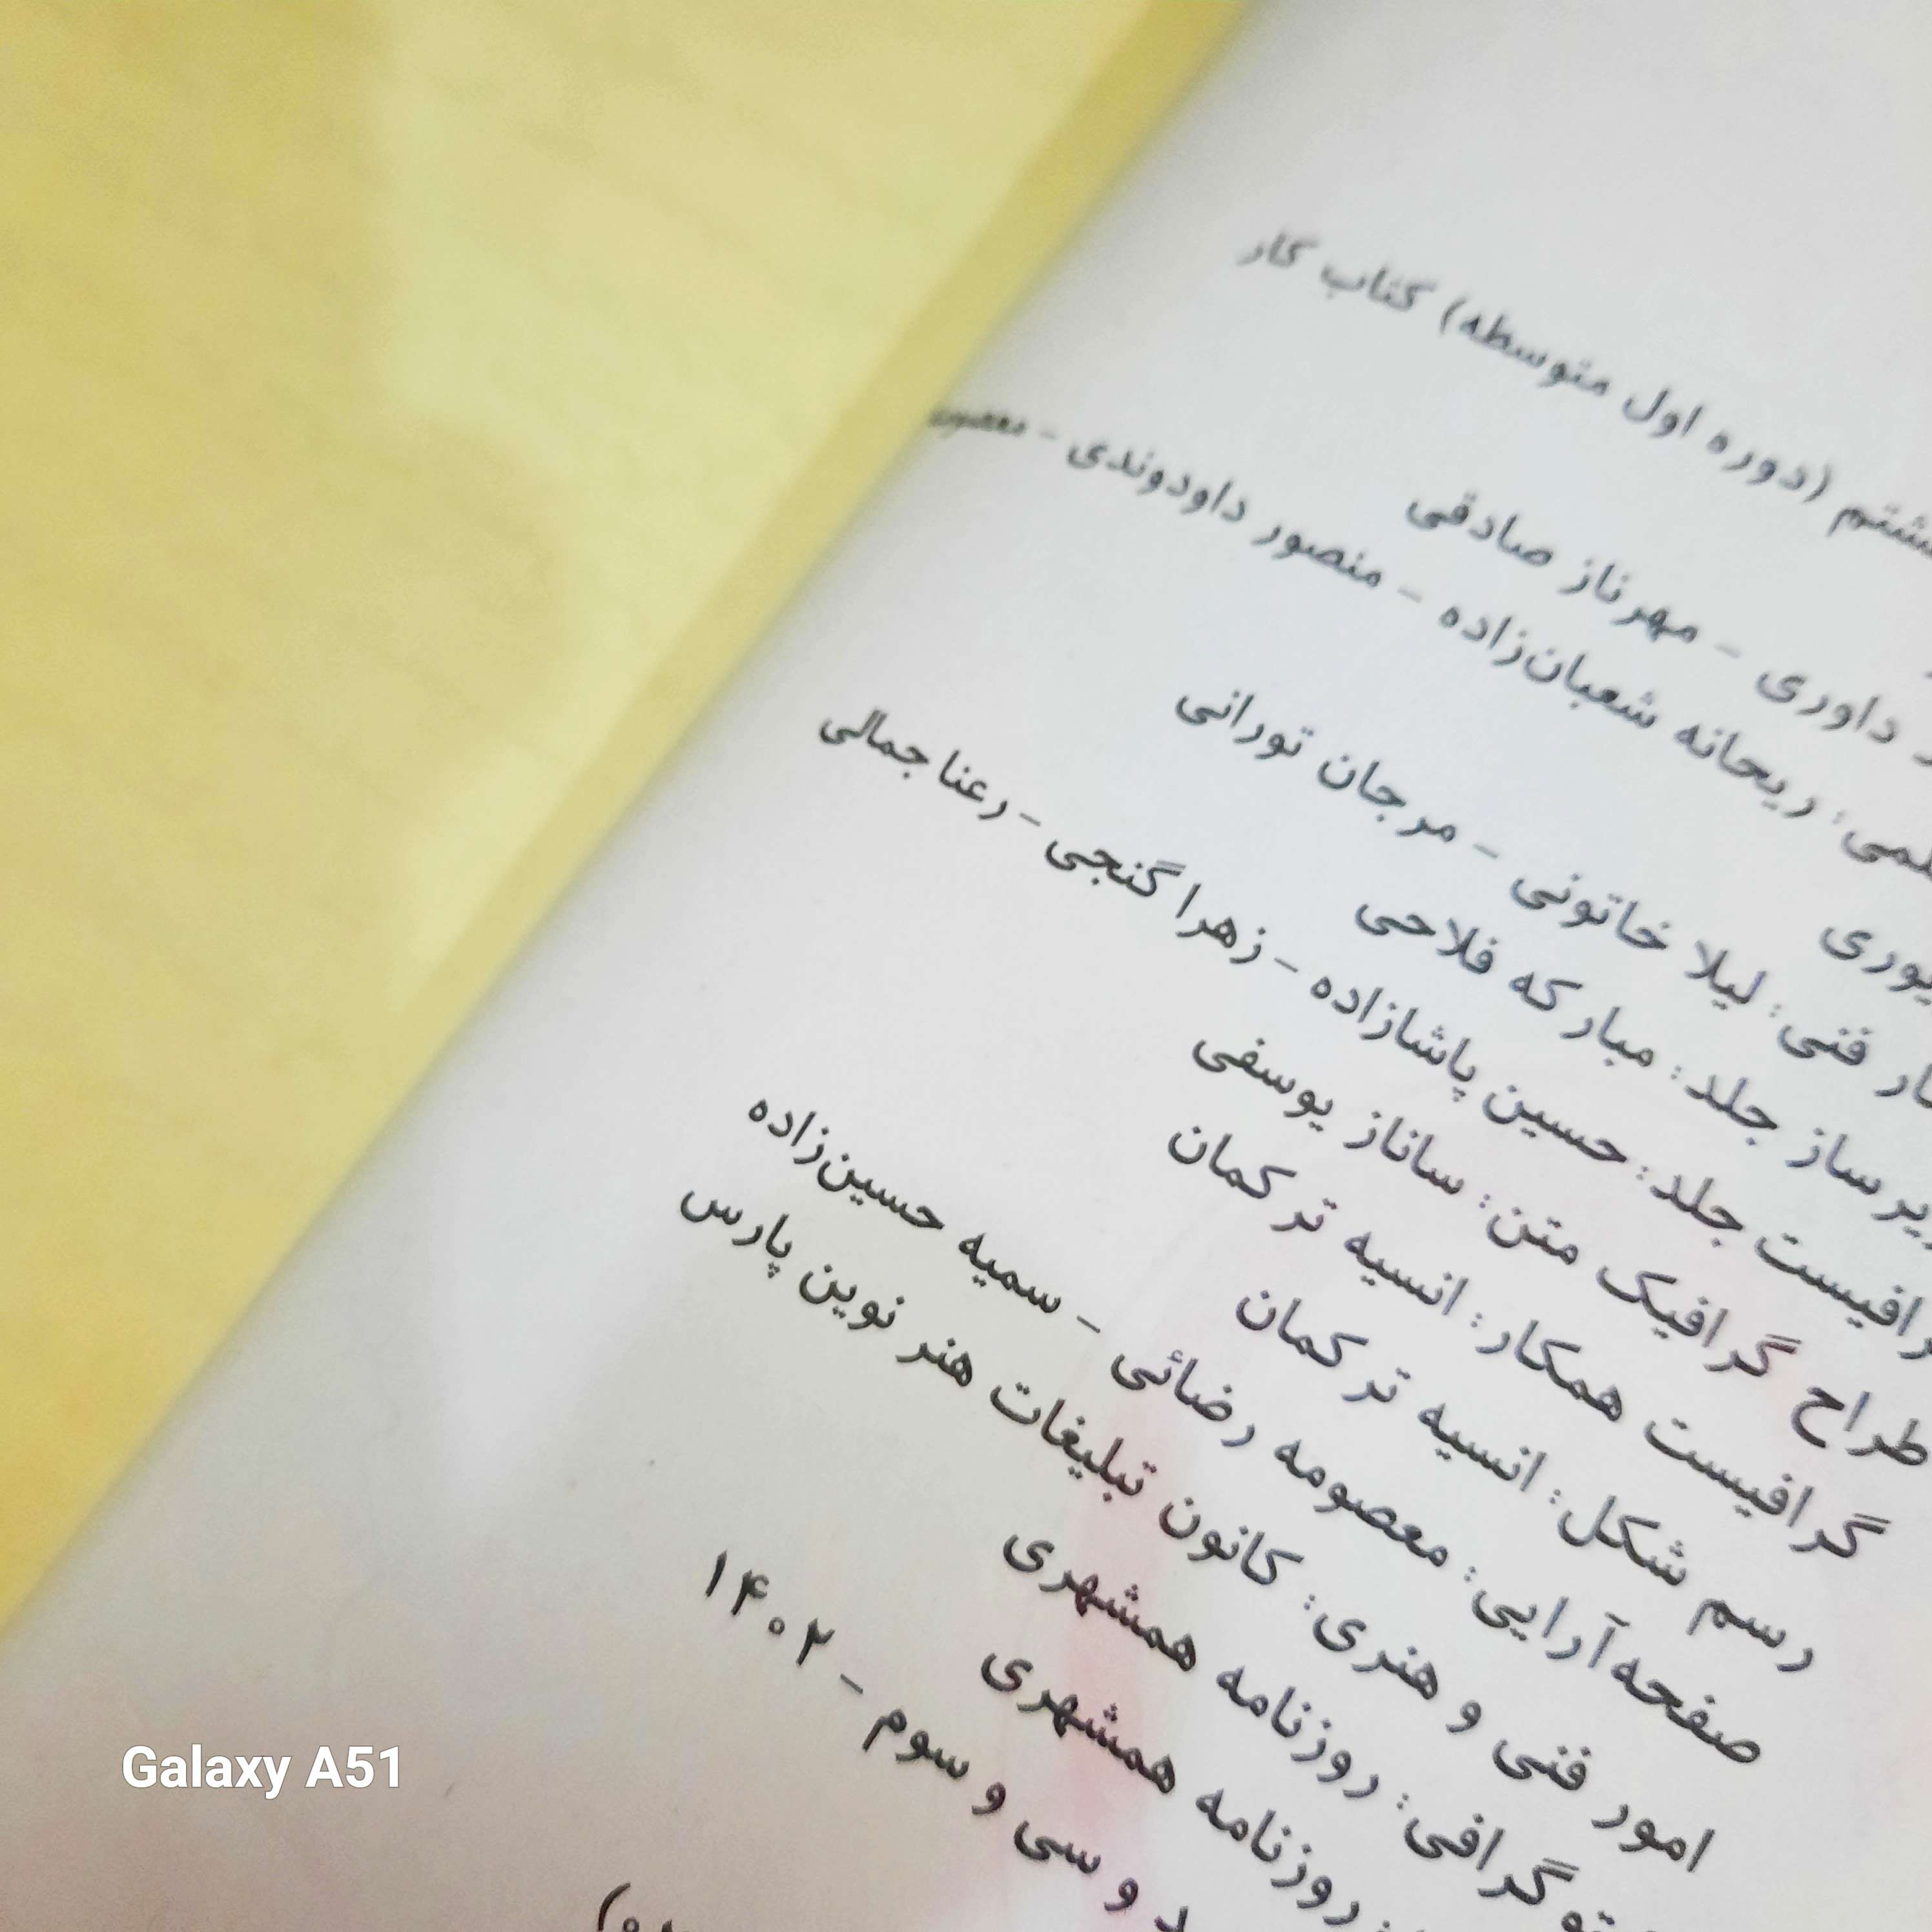 (دوره اول متوسطه) کتاب کار
داوری - مهرناز صادقی
ریحانه شعبان‌زاده - منصور داودوندی -
فنی: لیلا خاتونی - مرجان تورانی
جلد: مبارکه فلاحی
جلد: حسین پاشازاده - زهرا گنجی - رعنا جمالی
طراح گرافیک متن: ساناز یوسفی
گرافیست همکار: انسیه ترکمان
رسم شکل: انسیه ترکمان
صفحه‌آرایی: معصومه رضائی - سمیه حسین‌زاده
امور فنی و هنری: کانون تبلیغات هنر نوین پارس
روزنامه همشهری
روزنامه همشهری
و سی و سوم - ۱۴۰۲
Galaxy A51